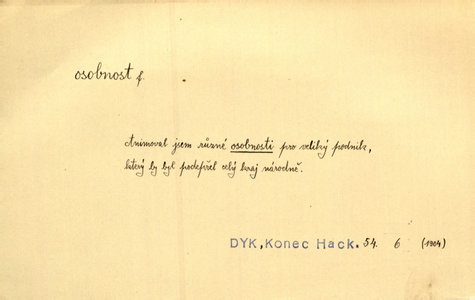 osobnost f.
Animoval jsem různé osobnosti pro veliký podnik,
který by byl podepřel celý kraj národně.
DYK, Konec Hack. 54. 6 (1904)